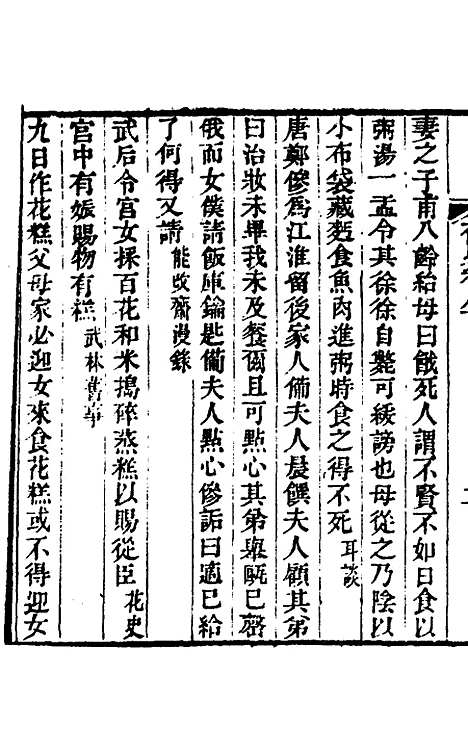 妻之子甫八齡給母曰餓死人謂不賢不如日食以
粥湯一盂令其徐徐自斃可緩謗也母從之乃陰以
小布袋藏麪食魚肉進粥時食之得不死 耳談
唐鄭傪爲江淮留後家人備夫人晨饌夫人顧其弟
曰治妝未畢我未及餐爾且可點心其弟舉甌已罄
俄而女僕請飯庫鑰匙備夫人點心傪詬曰適已給
了何得又請 能改齋漫錄
武后令宮女採百花和米搗碎蒸糕以賜從臣 花史
宮中有娠賜物有糕 武林舊事
九日作花糕父母家必迎女來食花糕或不得迎女